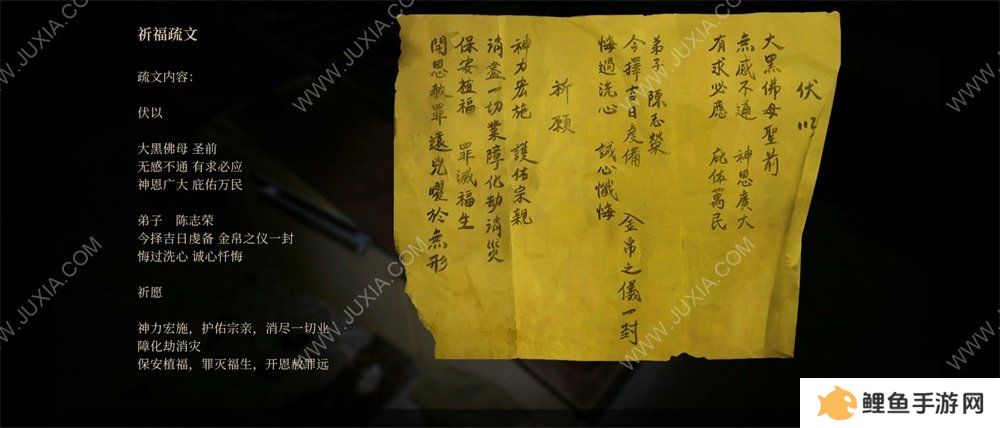 祈福疏文
疏文内容：
伏以
大黑佛母 圣前
无感不通 有求必应
神恩广大 庇佑万民
弟子 陈志荣
今择吉日虔备 金帛之仪一封
悔过洗心 诚心忏悔
祈愿
神力宏施，护佑宗亲，消尽一切业
障化劫消灾
保安植福，罪灭福生，开恩赦罪远
伏以
大黑佛母聖前
無感不通 神恩廣大
有求必應 庇佑萬民
弟子 陳志榮
今擇吉日虔備 金帛之儀一封
悔過洗心 誠心懺悔
祈願
神力宏施 護佑宗親
消盡一切業障化劫消災
保安植福 罪滅福生
開恩赦罪遠兇曜於無形
WWW.JUXIA.COM
WWW.JUXIA.COM
WWW.JUXIA.COM
WWW.JUXIA.COM
WWW.JUXIA.COM
WWW.JUXIA.COM
鲤鱼手游网